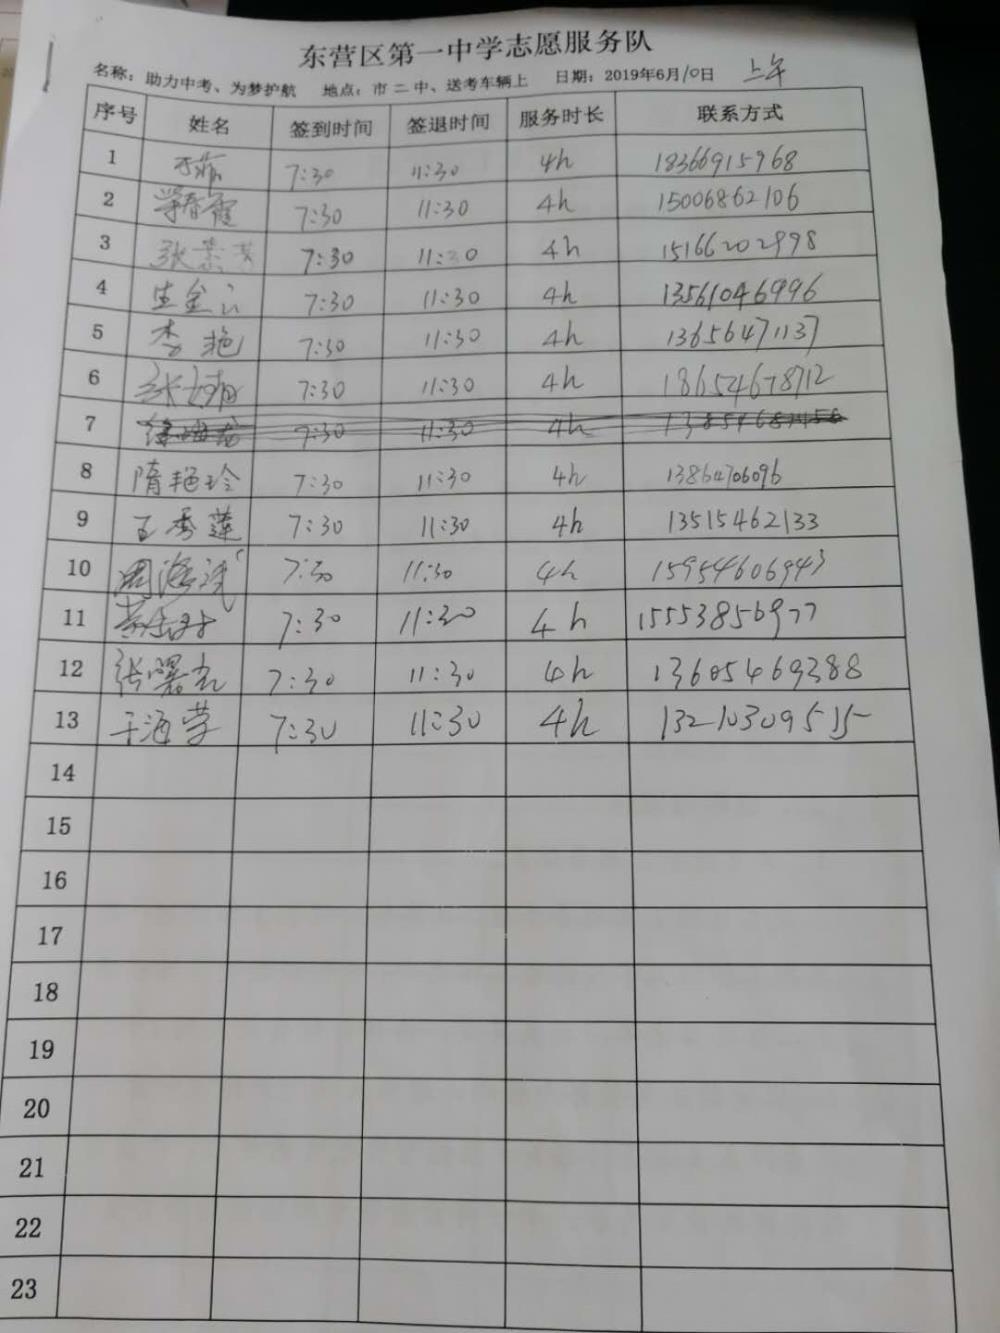 东营区第一中学志愿服务队
名称：助力中考、为梦护航 地点：市二中、送考车辆上 日期：2019年6月10日 上午
序号 姓名 签到时间 签退时间 服务时长 联系方式
1 7:30 11:30 4h 18366915968
2 7:30 11:30 4h 15006862106
3 张 7:30 11:30 4h 15166202998
4 生金 7:30 11:30 4h 13561046996
5 李艳 7:30 11:30 4h 13656471137
6 张 7:30 11:30 4h 18654678712
7 7:30 11:30 4h
8 隋艳玲 7:30 11:30 4h 13864706096
9 王秀莲 7:30 11:30 4h 13515462133
10 周海 7:30 11:30 4h 15954606943
11 7:30 11:30 4h 15553856977
12 张曙光 7:30 11:30 4h 13605469388
13 于海萍 7:30 11:30 4h 13210309515
14
15
16
17
18
19
20
21
22
23